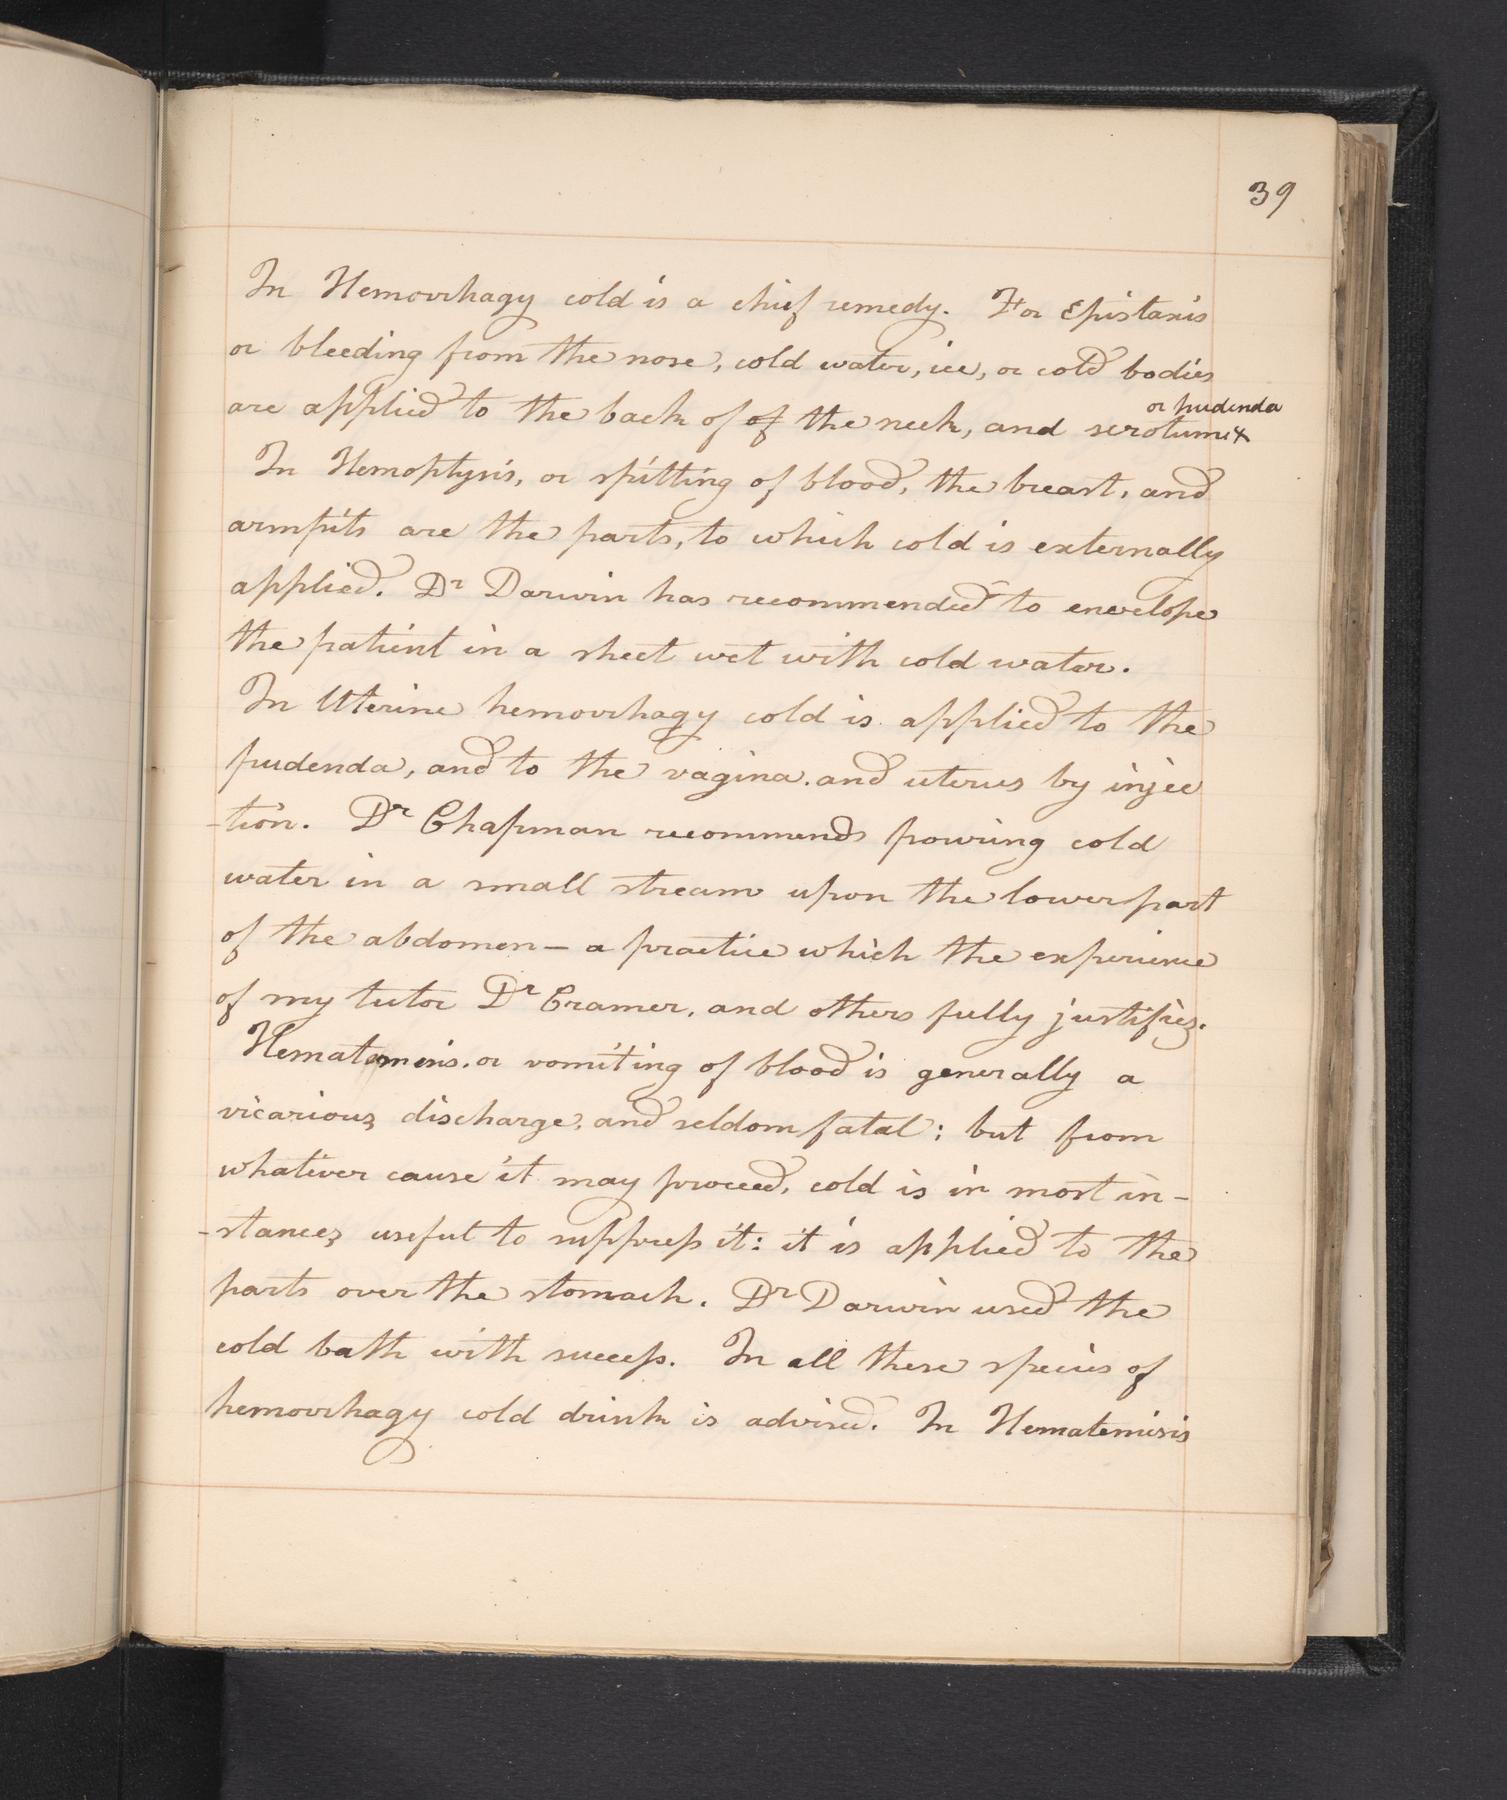 39
In Hemorrhagy cold is a chief remedy. For Epistaxis
or bleeding from the nose, cold water, ice, or cold bodies
are applied to the back of of the neck, and scrotum x
or pudenda
In Hemoptysis, or spitting of blood, the breast, and
armpits are the parts, to which cold is externally
applied. Dr Darwin has recommended to envelope
the patient in a sheet wet with cold water.
In Uterine hemorrhagy cold is applied to the
pudenda, and to the vagina. and uterus by injec
-tion. Dr Chapman recommends powring cold
water in a small stream upon the lower part
of the abdomen — a practice which the experience
of my tutor Dr Cramer, and others fully justifies.
Hematemesis. or vomiting of blood is generally a
vicarious discharge, and seldom fatal; but from
whatever cause it may proceed, cold is in most in-
-stances useful to suppress it: it is applied to the
parts over the stomach. Dr Darwin used the
cold bath with success. In all these species of
hemorrhagy cold drink is advised. In Hematemisis